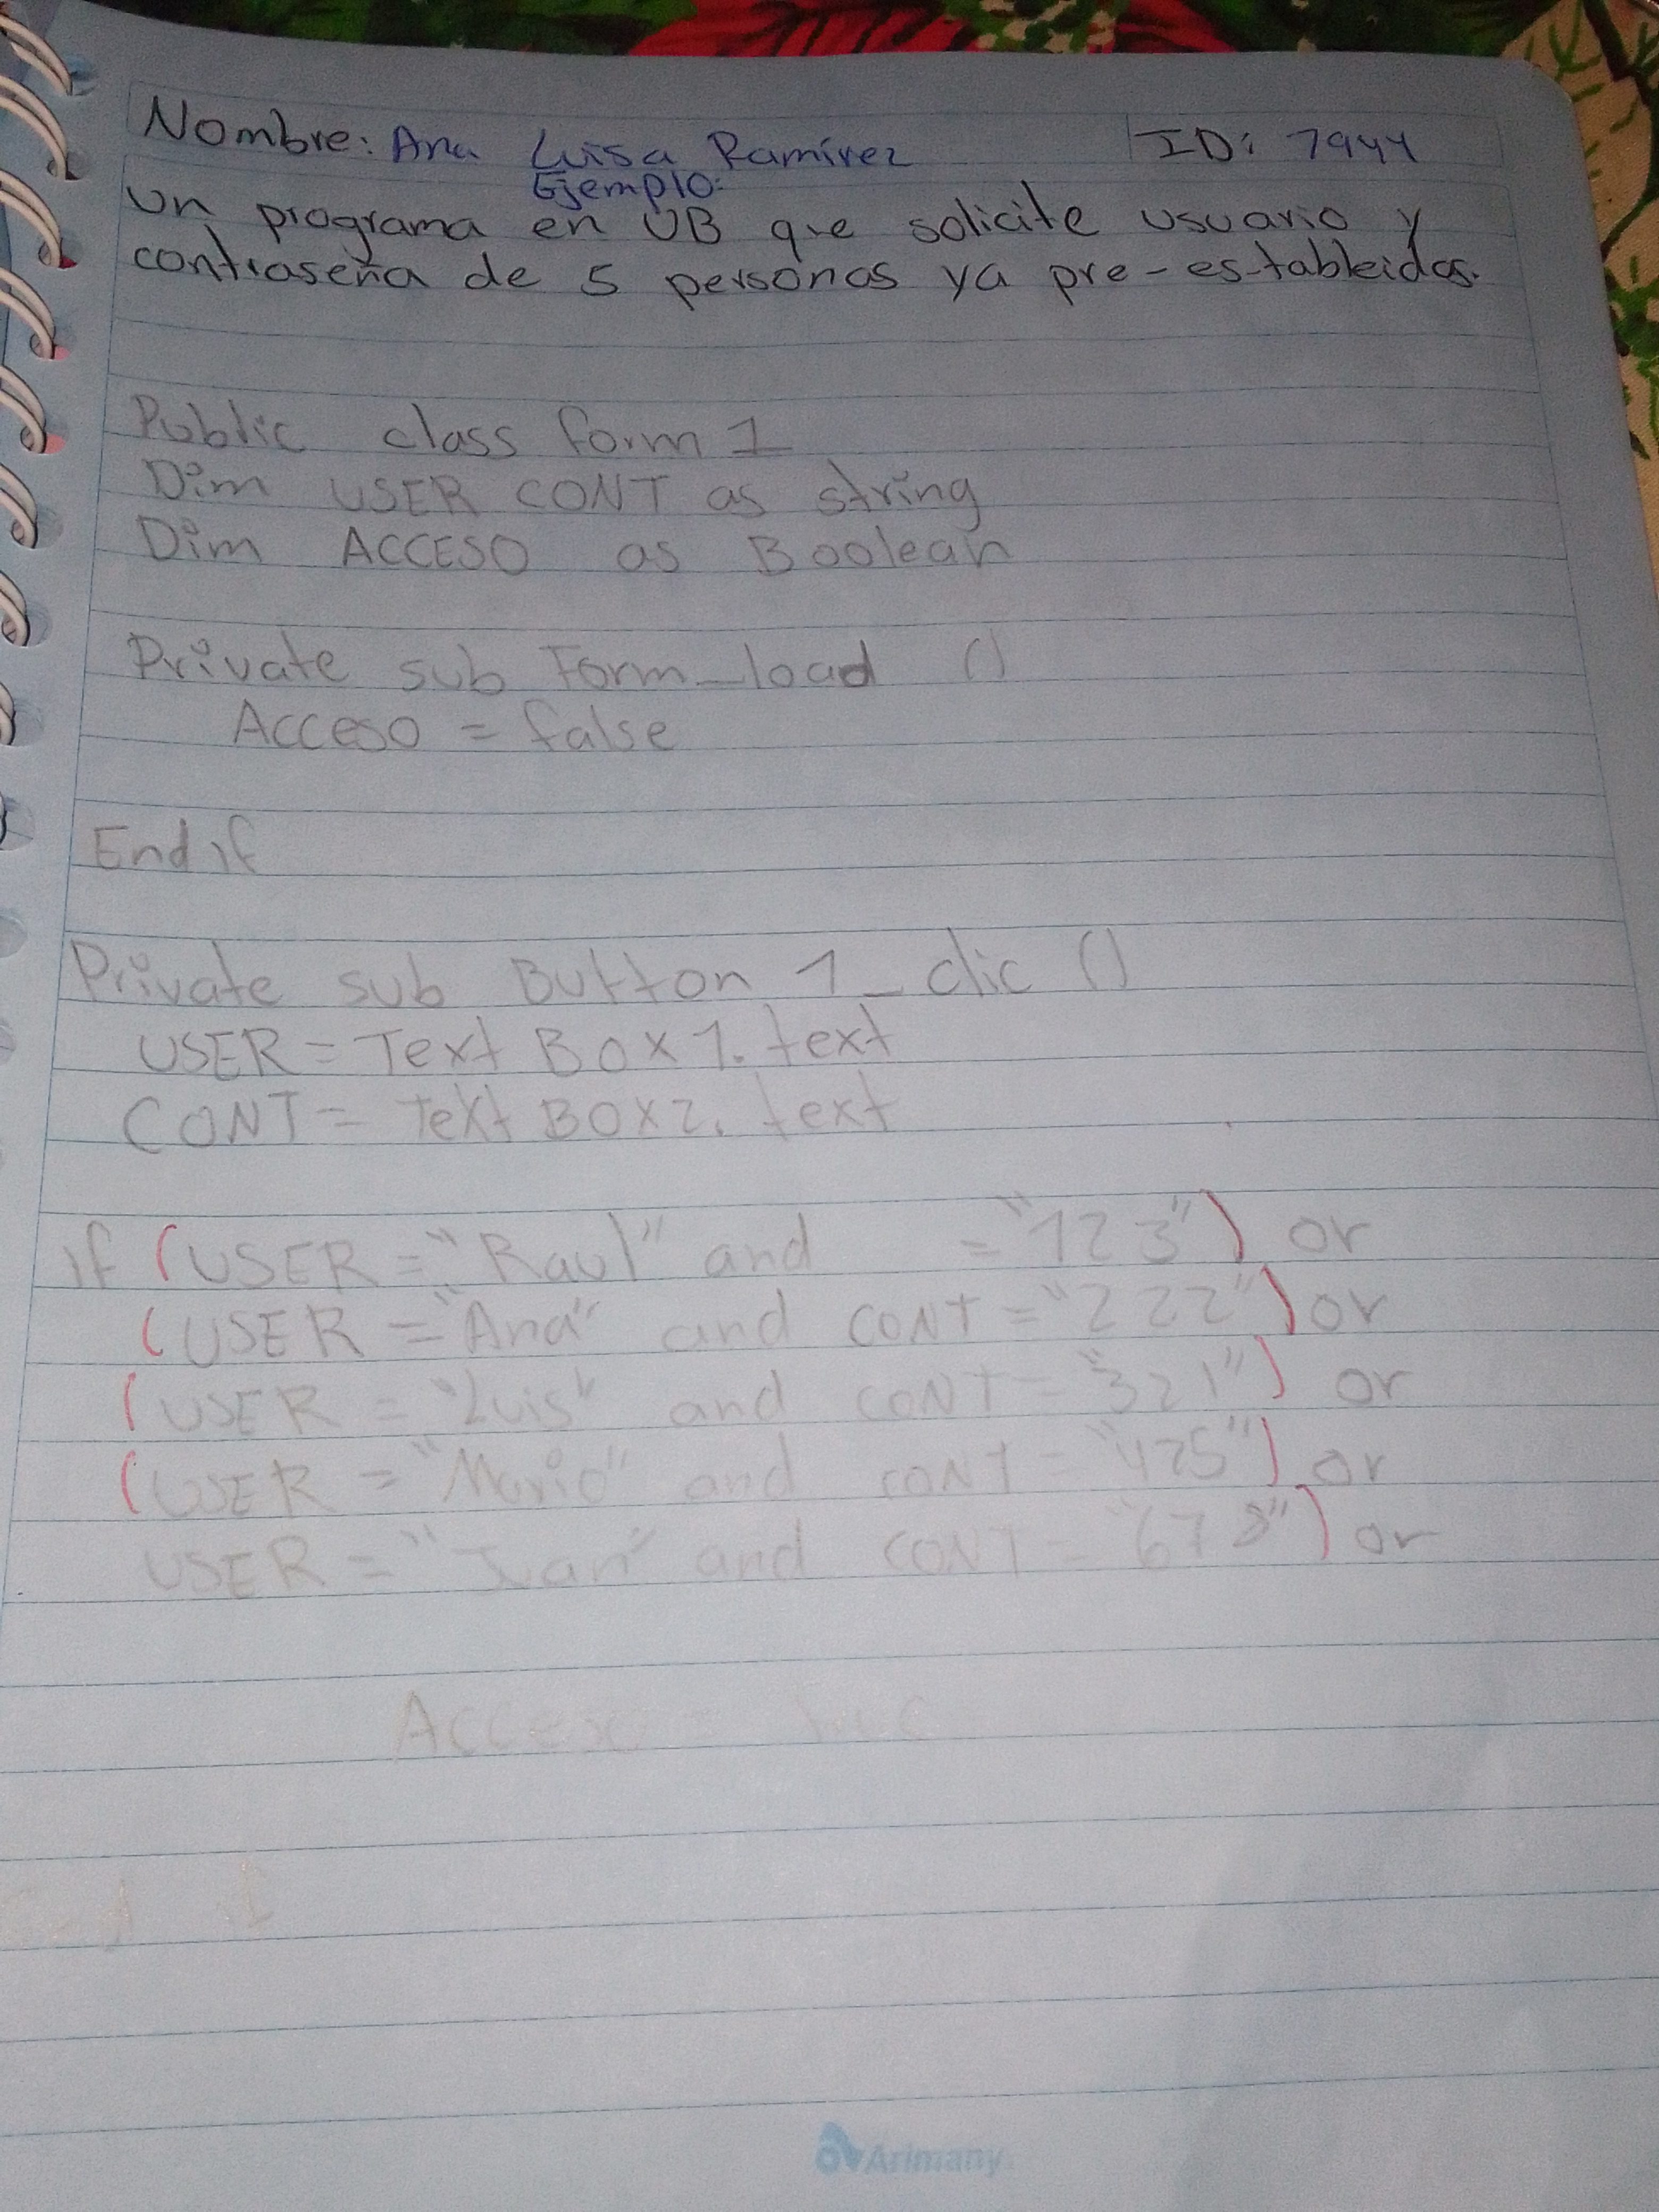 Nombre: Ana Luisa Ramírez ID: 7944
Ejemplo:
un programa en UB que solicite usuario y
contraseña de 5 personas ya pre-estableidas.
Public class form 1
Dim USER CONT as string
Dim ACCESO as Boolean
Private sub Form_load ()
Acceso = false
End if
Private sub Button 1_clic ()
USER = Text BOX 1. text
CONT = Text BOX2. text
if (USER = "Raul" and = "123") or
(USER = "Ana" and CONT = "222") or
(USER = "Luis" and CONT = "321") or
(USER = "Mario" and CONT = "425") or
USER = "Juan" and CONT = "678") or
Arimany